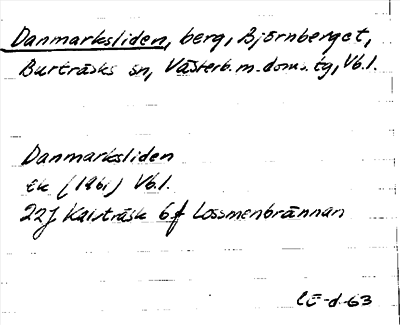 Danmarksliden, berg, Björnberget,
Burträsks sn, Västerb. m. doms. tg, Vb. l.
Danmarksliden
Ek (1961) Vb. l.
22J Kalvträsk 6f Lossmenbrännan
CE-d-63